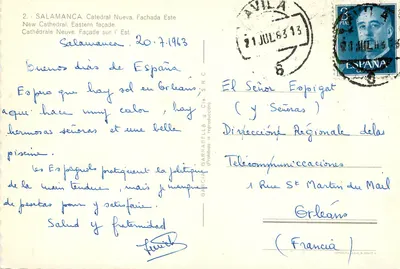 2. - SALAMANCA. Catedral Nueva. Fachada Este
New Cathedral. Eastern façade
Cathédrale Neuve. Façade sur l'Est
Salamanca 20.7.1963
Buenos dias de España
Espero que hay sol en Orleans,
aqui hace muy calor, hay
hermosas señoras et une belle
piscine.
Les Espagnols pratiquent la politique
de la main tendue, mais y manque
de pesetas pour y satisfaire.
Salud y fraternidad
AVILA
21 JUL 63 13
5
El Señor Espigat
(y Señoras)
Direccione Régionale de las
Telecommunicaciones
1 Rue St Martin du Mail
Orléans
(Francia)